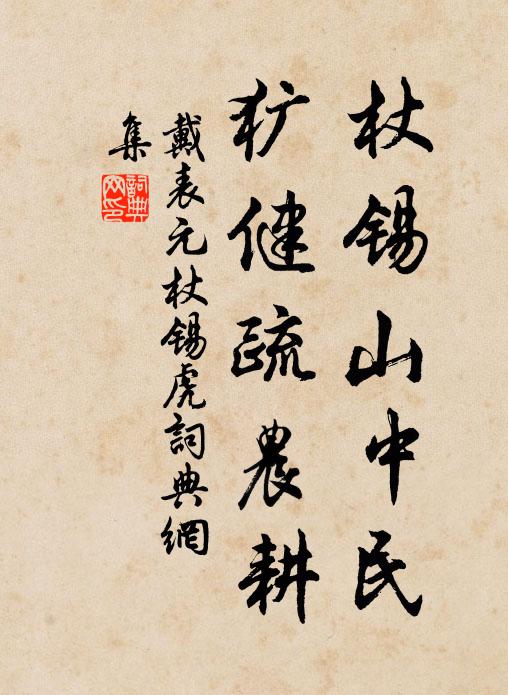 杖锡山中民
犷健疏農耕
戴表元杖锡虎詞典網
集
詞典
网印